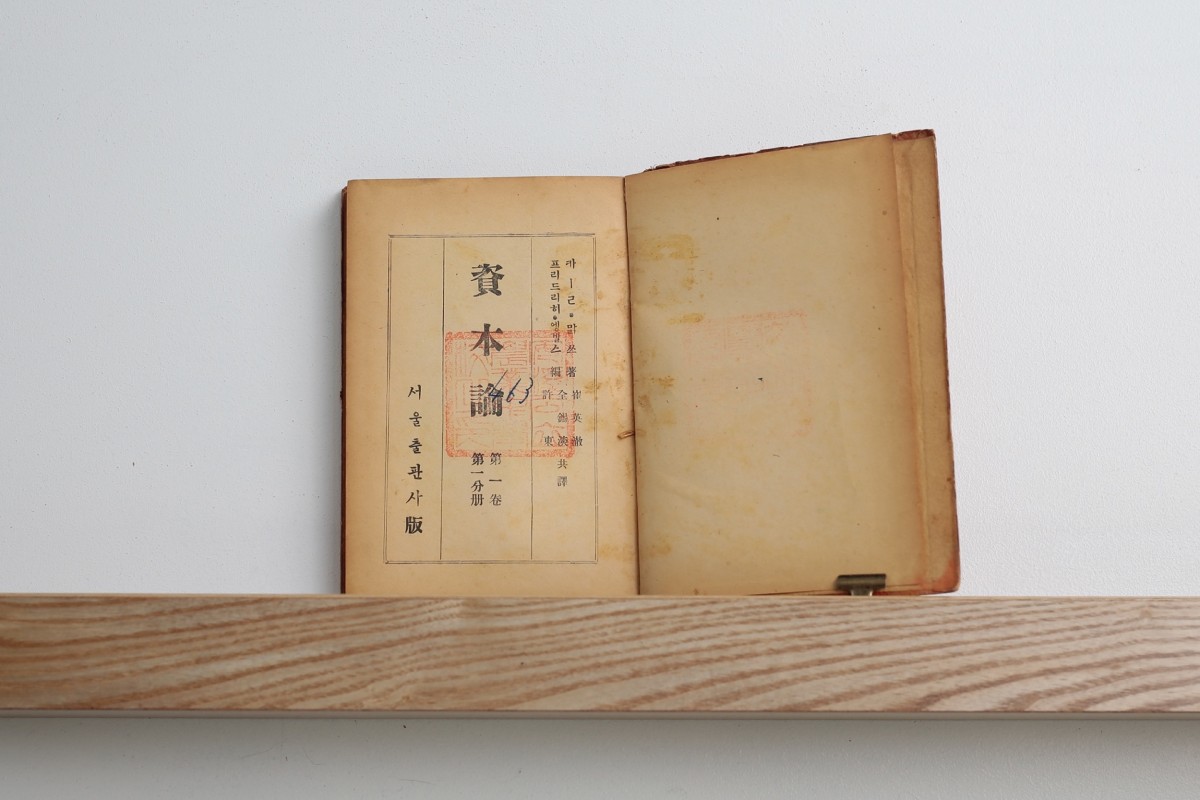 카ー르·맑쓰 著
프리드리히·엥겔스 編
崔英澈
全錫淡 共譯
許東
資本論
第一卷
第一分册
463
서울출판사版